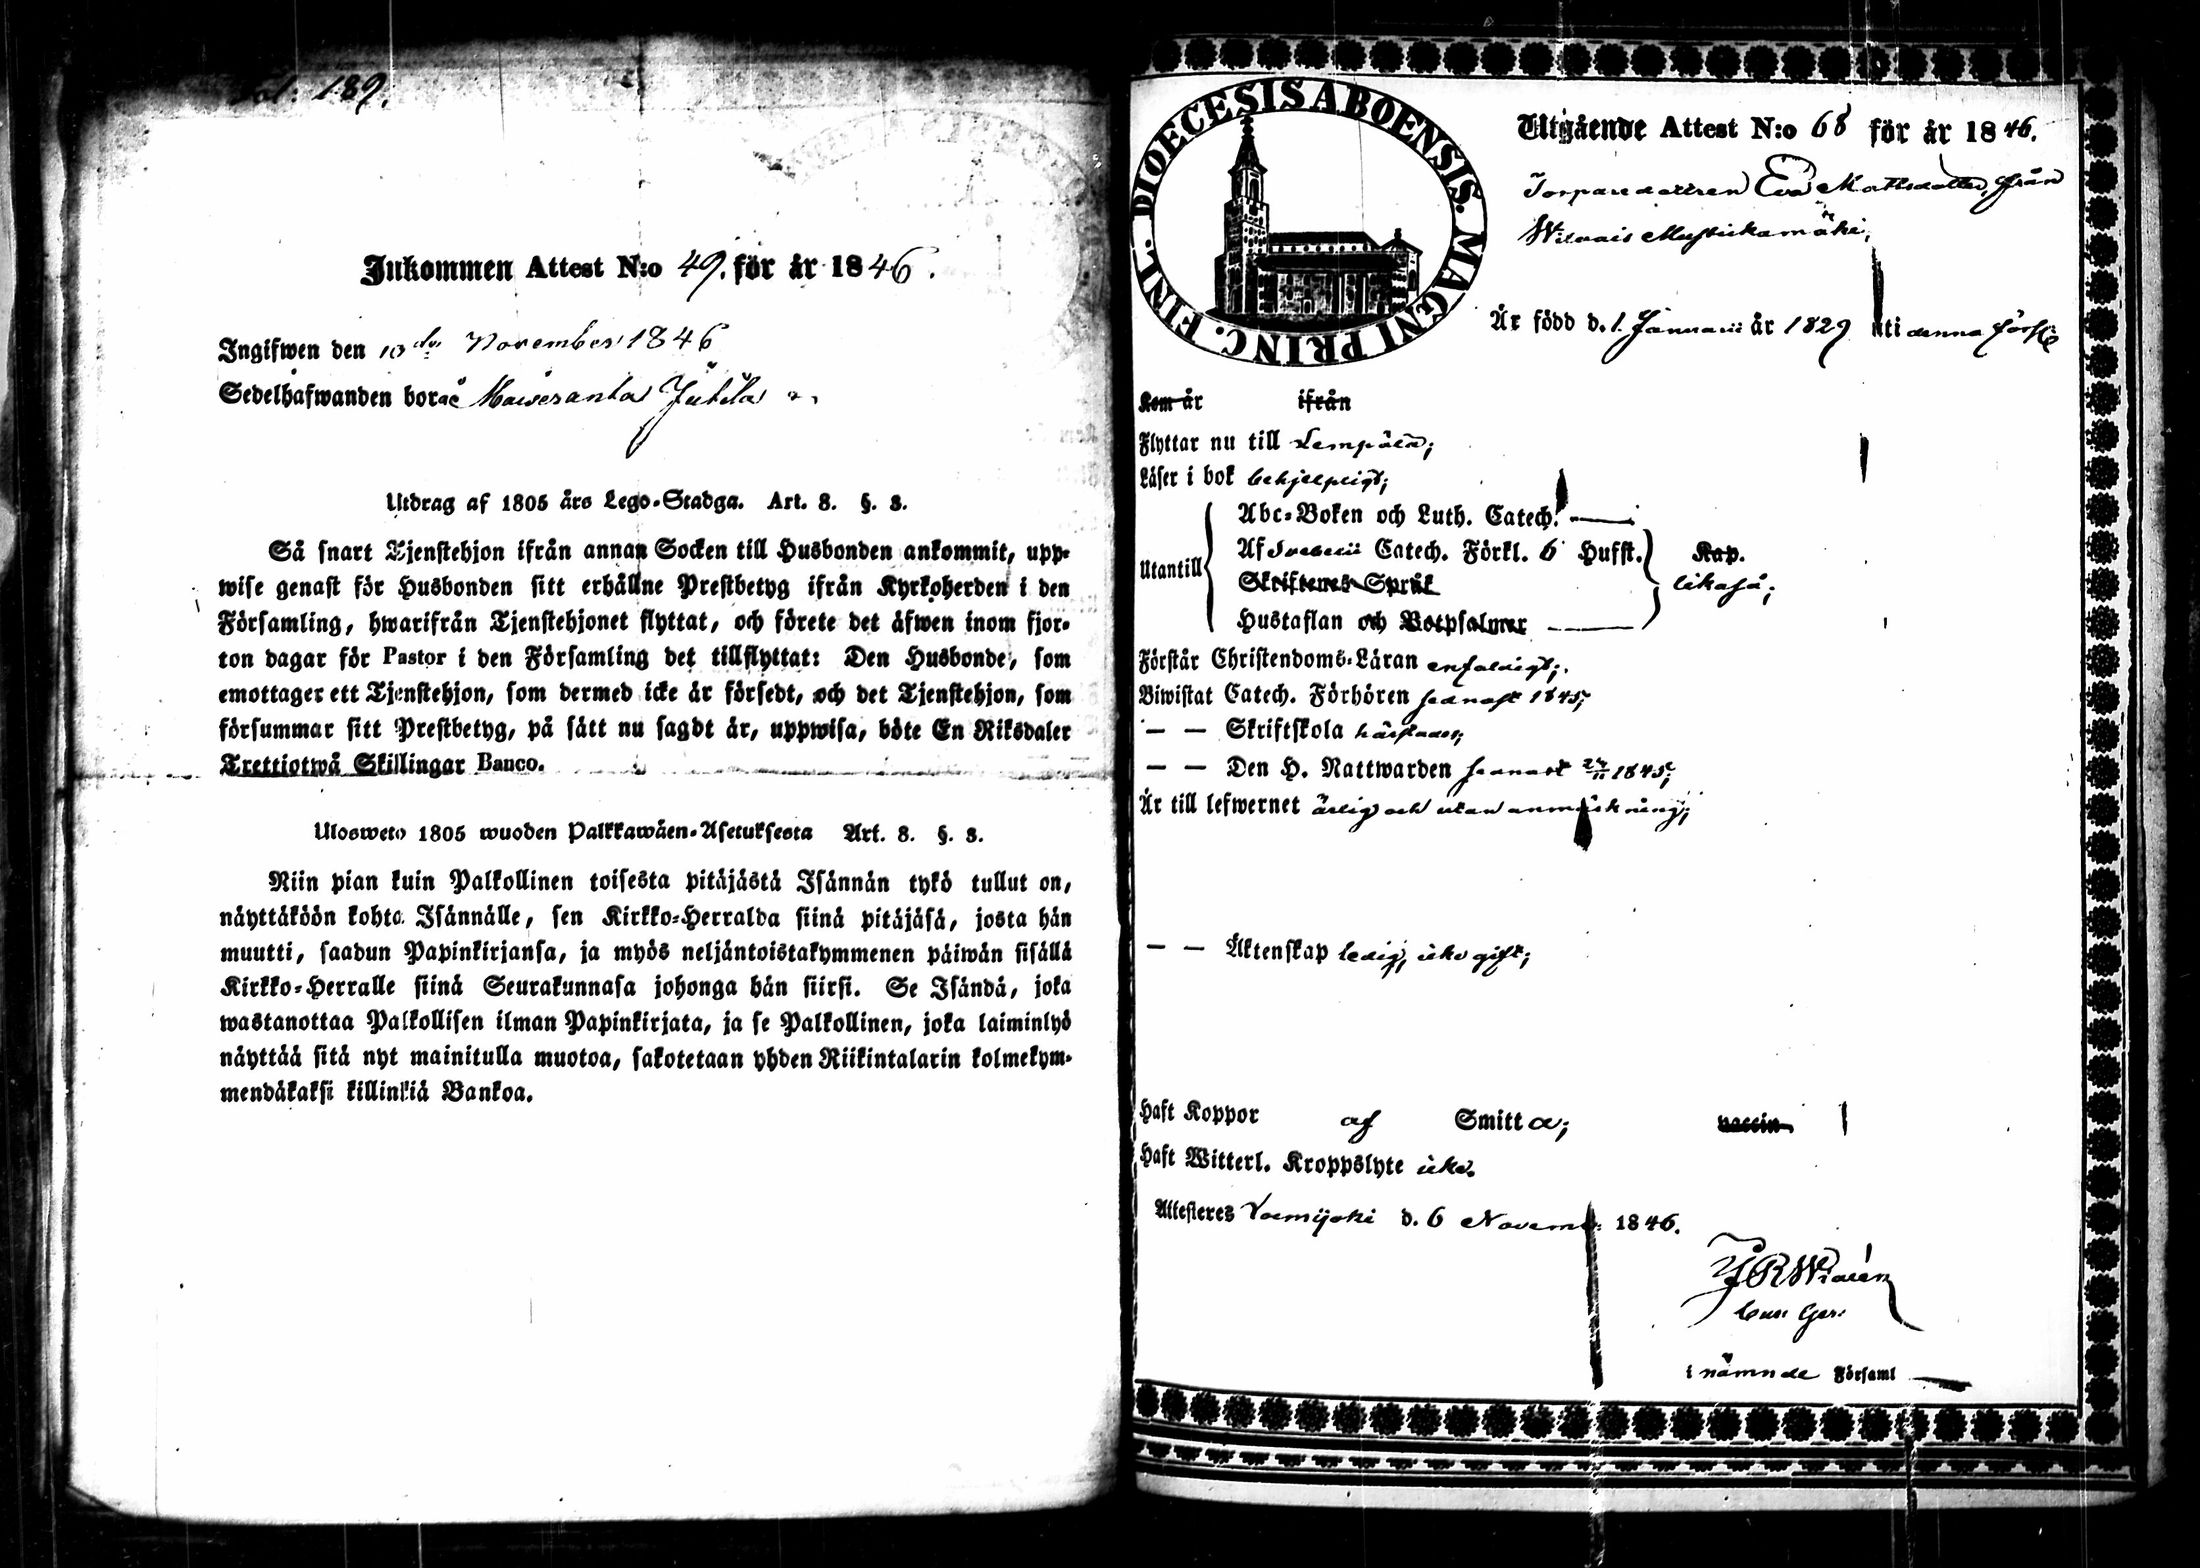 189.
Inkommen Attest N:o 49. för år 1846.
Ingifwen den 10de November 1846
Sedelhafwanden borde
Utdrag af 1805 års Lego-Stadga. Art. 8. §. 3.
Så snart Tjenstehjon ifrån annan Socken till Husbonden ankommit, upp-
wise genast för Husbonden sitt erhållne Prestbetyg ifrån Kyrkoherden i den
Församling, hwarifrån Tjenstehjonet flyttat, och förete det äfwen inom fjor-
ton dagar för Pastor i den Församling det tillflyttat: Den Husbonde, som
emottager ett Tjenstehjon, som dermed icke är försedt, och det Tjenstehjon, som
försummar sitt Prestbetyg, på sätt nu sagdt är, uppwisa, böte En Riksdaler
Trettiotwå Skillingar Banco.
Ulosweto 1805 wuoden Palkkawäen-Asetuksesta Art. 8. §. 3.
Niin pian kuin Palkollinen toisesta pitäjästä Isännän tykö tullut on,
näyttäköön kohta Isännälle, sen Kirkko-Herralda siinä pitäjäsä, josta hän
muutti, saadun Papinkirjansa, ja myös neljäntoistakymmenen päiwän sisällä
Kirkko-Herralle siinä Seurakunnasa johonga hän siirsi. Se Isändä, joka
wastanottaa Palkollisen ilman Papinkirjata, ja se Palkollinen, joka laiminlyö
näyttää sitä nyt mainitulla muotoa, sakotetaan yhden Riikintalarin kolmekym-
mendäkaksi killinkiä Bankoa.
FINL. DIOECESIS ABOENSIS. MAGNI PRINC.
Utgående Attest N:o 68 för år 1846.
Torparedottren Eva Mattsdotter, från
Är född d. 1 Januarii år 1829 uti denna Förs:g
Kom år ifrån
Flyttar nu till Lempälä;
Läser i bok behjelpligt;
Abc-Boken och Luth. Catech.
Utantill Af Svebelii Catech. Förkl. 6 Hufst. Kap.
Skriftenes Språk likaså;
Hustaflan och Botpsalmer
Förstår Christendoms-Läran enfaldigt;
Biwistat Catech. Förhören sednast 1845;
— — Skriftskola härstädes;
— — Den H. Nattwarden sednast 1845;
Är till lefwernet ärlig och utan anmärkning;
— — Äktenskap ledig, icke gift;
Haft Koppor af Smitta; vaccin
Haft Witterl. Kroppslyte icke.
Attesteres Loimijoki d. 6 Novemb: 1846.
i nämnde Församl